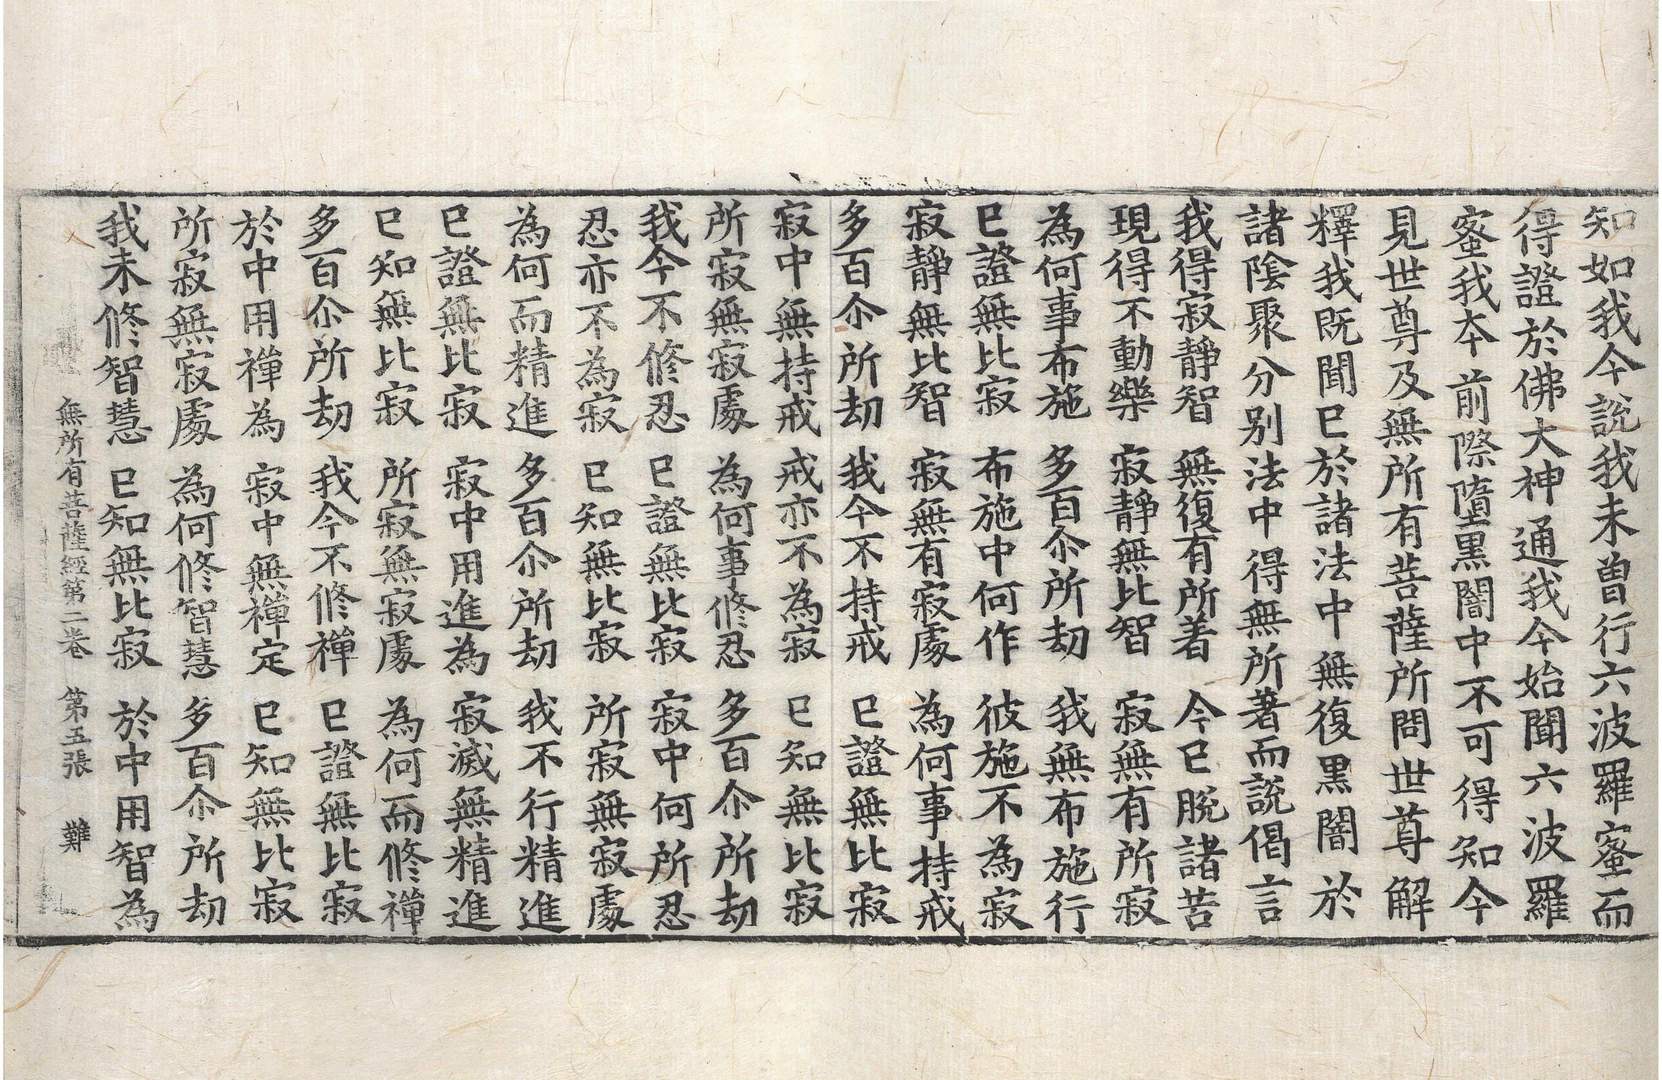 知如我今說我未曾行六波羅蜜而
得證於佛大神通我今始聞六波羅
蜜我本前際墮黒闇中不可得知今
見世尊及無所有菩薩所問世尊解
釋我既聞已於諸法中無復黒闇於
諸陰聚分別法中得無所著而說偈言
我得寂靜智 無復有所著 今已脫諸苦
現得不動樂 寂靜無比智 寂無有所寂
為何事布施 多百尒所劫 我無布施行
已證無比寂 布施中何作 彼施不為寂
寂靜無比智 寂無有寂處 為何事持戒
多百尒所劫 我今不持戒 已證無比寂
寂中無持戒 戒亦不為寂 已知無比寂
所寂無寂處 為何事修忍 多百尒所劫
我今不修忍 已證無比寂 寂中何所忍
忍亦不為寂 已知無比寂 所寂無寂處
為何而精進 多百尒所劫 我不行精進
已證無比寂 寂中用進為 寂滅無精進
已知無比寂 所寂無寂處 為何而修禪
多百尒所劫 我今不修禪 已證無比寂
於中用禪為 寂中無禪定 已知無比寂
所寂無寂處 為何修智慧 多百尒所劫
我未修智慧 已知無比寂 於中用智為
無所有菩薩經第二卷 第五張 難